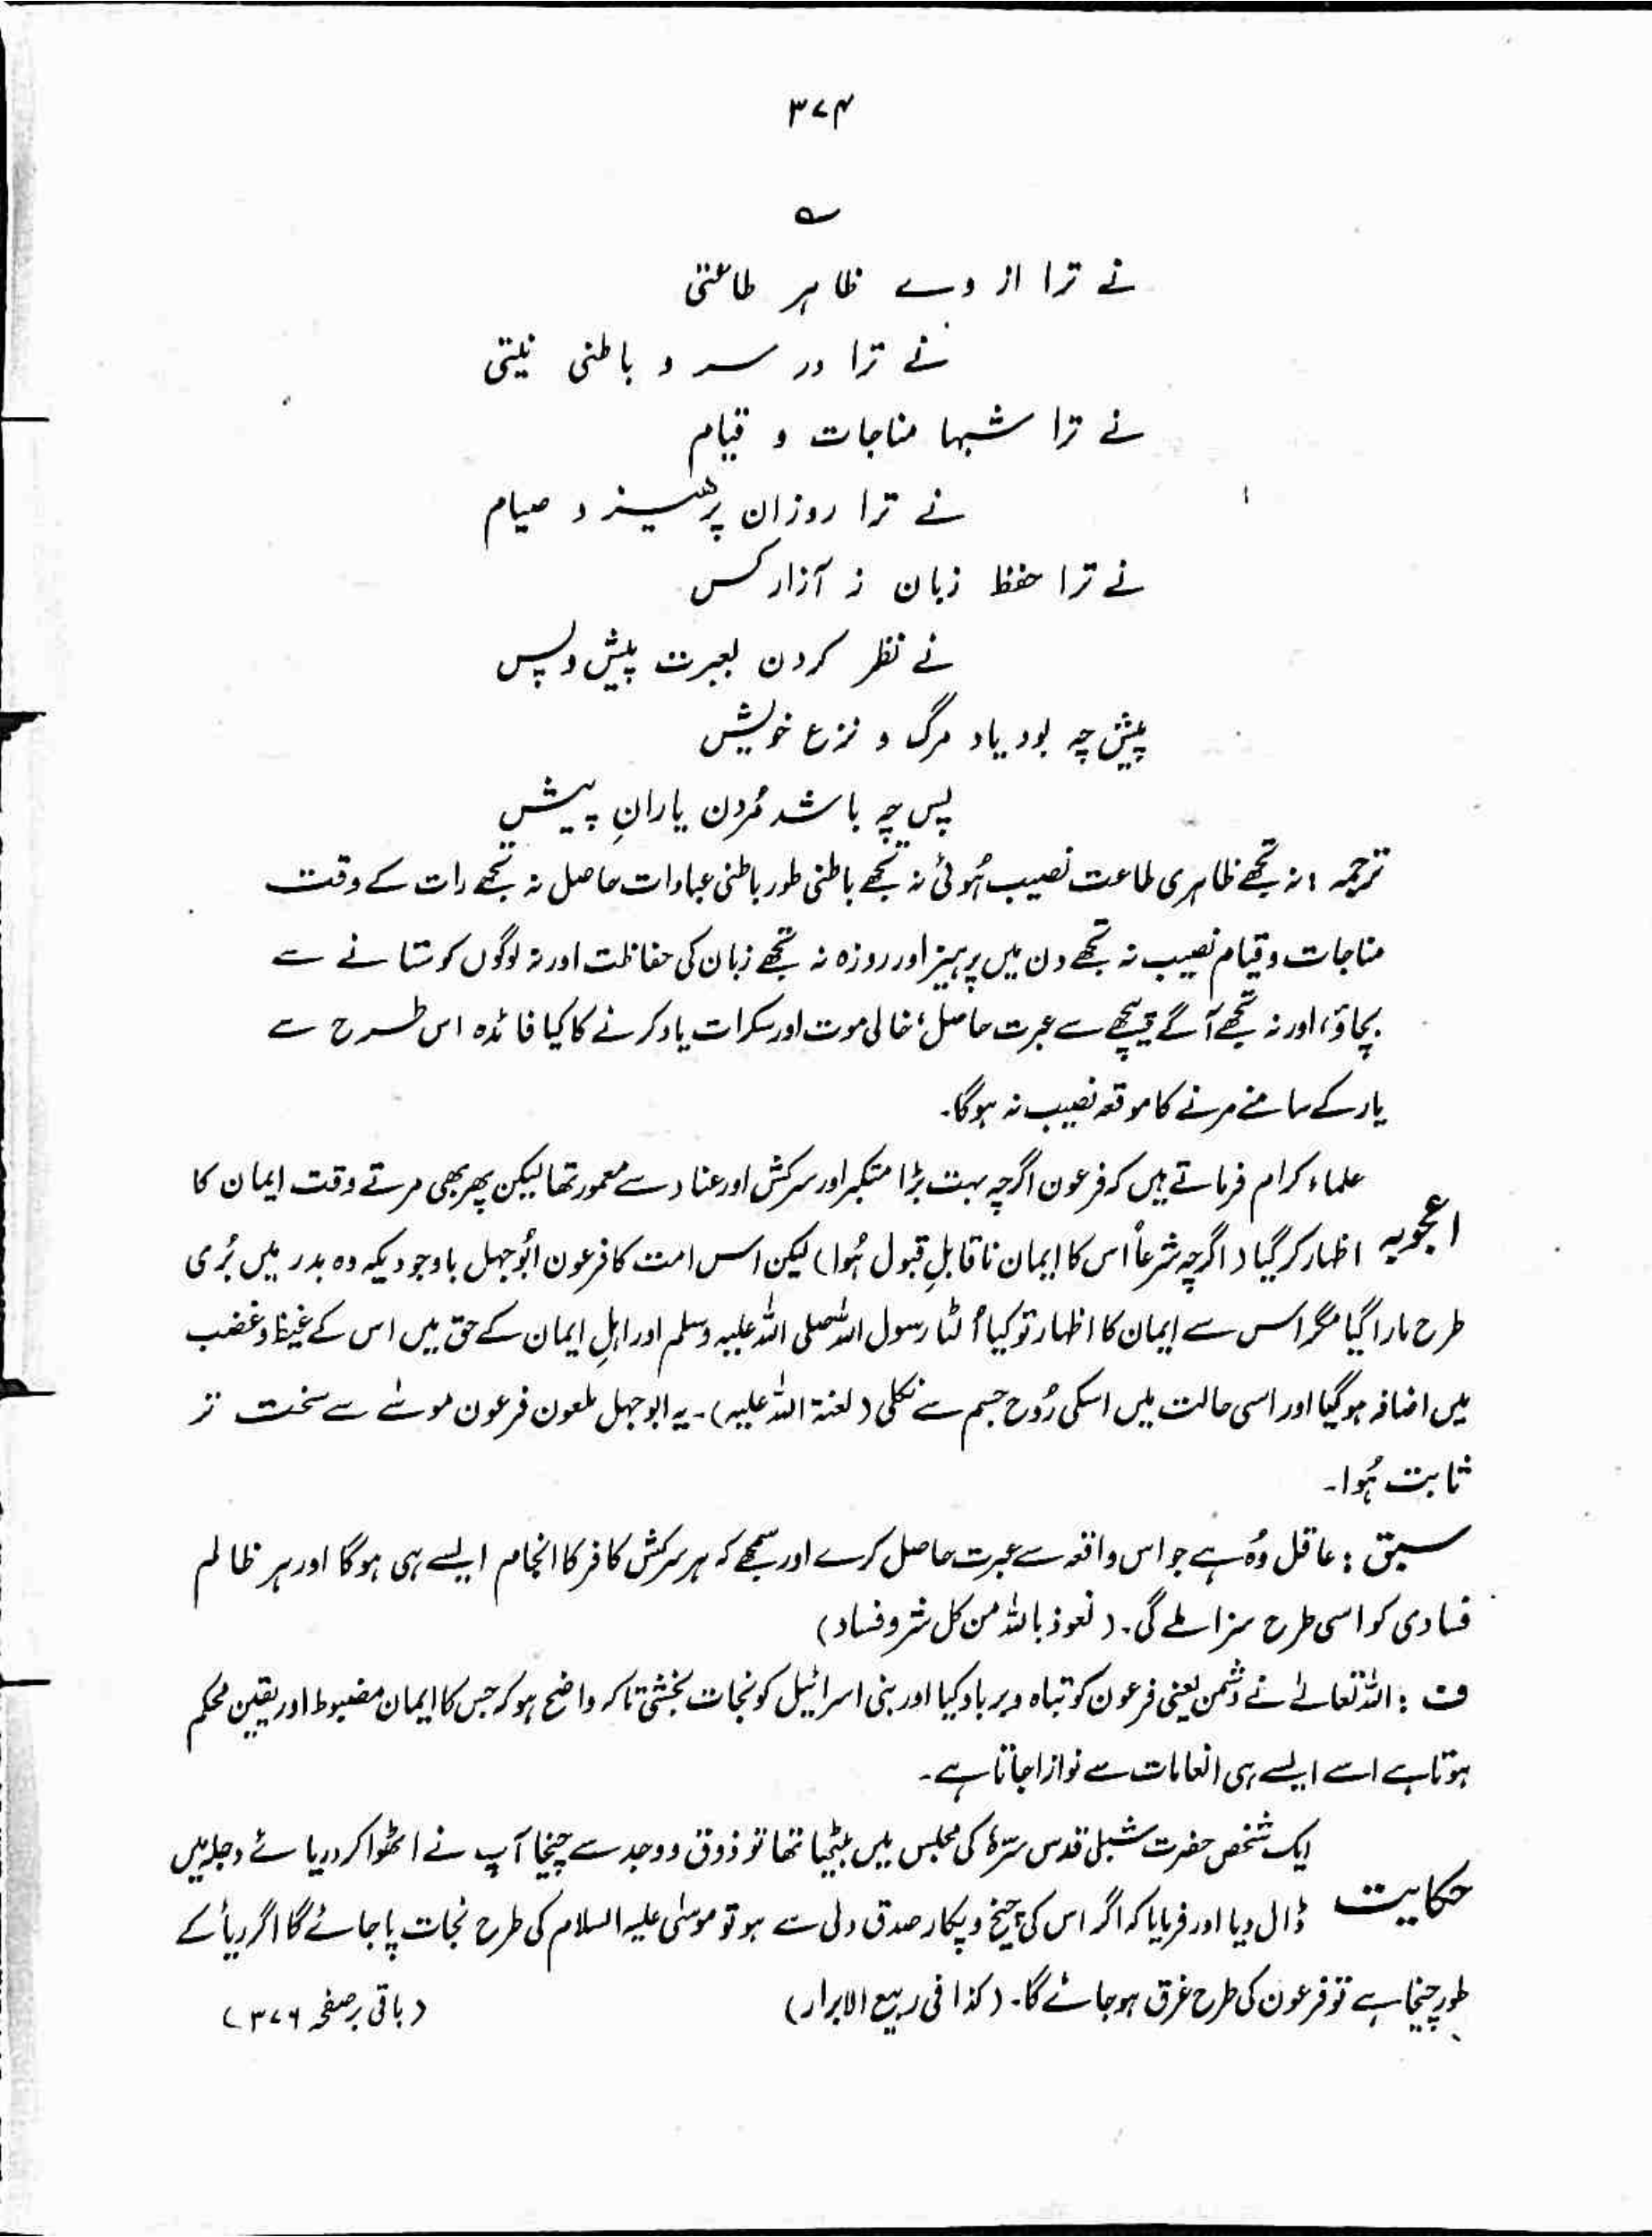 ۳۷۴
؎
نے ترا از وے ظاہر طاعتی
نے ترا در سر و باطنی نیتی
نے ترا شبہا مناجات و قیام
نے ترا روزان پرھیز و صیام
نے ترا حفظ زبان ز آزار کس
نے نظر کردن بعبرت پیش و پس
پیش چہ بود یاد مرگ و نزع خویش
پس چہ باشد مُردن یارانِ پیش
ترجمہ : نہ تجھے ظاہری طاعت نصیب ہُوئی نہ تجھے باطنی طور باطنی عبادات حاصل نہ تجھے رات کے وقت
مناجات و قیام نصیب نہ تجھے دن میں پرہیز اور روزہ نہ تجھے زبان کی حفاظت اور نہ لوگوں کو ستانے سے
بچاؤ، اور نہ تجھے آگے پیچھے سے عبرت حاصل، خالی موت اور سکرات یاد کرنے کا کیا فائدہ اس طرح سے
یار کے سامنے مرنے کا موقعہ نصیب نہ ہوگا۔
علماء کرام فرماتے ہیں کہ فرعون اگرچہ بہت بڑا متکبر اور سرکش اور عناد سے معمور تھا لیکن پھر بھی مرتے وقت ایمان کا
اعجوبہ اظہار کر گیا (اگرچہ شرعاً اس کا ایمان ناقابلِ قبول ہُوا) لیکن اس امت کا فرعون ابُوجہل باوجودیکہ وہ بدر میں بُری
طرح مارا گیا مگر اس سے ایمان کا اظہار تو کیا اُلٹا رسول اللہ صلی اللہ علیہ وسلم اور اہلِ ایمان کے حق میں اس کے غیظ و غضب
میں اضافہ ہوگیا اور اسی حالت میں اسکی رُوح جسم سے نکلی (لعنۃ اللہ علیہ)۔ یہ ابوجہل ملعون فرعون موسٰے سے سخت تر
ثابت ہُوا۔
سبق : عاقل وُہ ہے جو اس واقعہ سے عبرت حاصل کرے اور سمجھے کہ ہر سرکش کافر کا انجام ایسے ہی ہوگا اور ہر ظالم
فسادی کو اسی طرح سزا ملے گی۔ (نعوذ باللہ من کل شر و فساد)
ف : اللہ تعالےٰ نے دشمن یعنی فرعون کو تباہ و برباد کیا اور بنی اسرائیل کو نجات بخشی تاکہ واضح ہو کہ جس کا ایمان مضبوط اور یقین محکم
ہوتا ہے اسے ایسے ہی انعامات سے نوازا جاتا ہے۔
ایک شخص حضرت شبلی قدس سرّہٗ کی مجلس میں بیٹھا تھا تو ذوق و وجد سے چیخا آپ نے اٹھوا کر دریائے دجلہ میں
حکایت ڈال دیا اور فرمایا کہ اگر اس کی چیخ و پکار صدق دلی سے ہو تو موسٰی علیہ السلام کی طرح نجات پا جائے گا اگر ریأ کے
طور چیخا ہے تو فرعون کی طرح غرق ہو جائے گا۔ (کذا فی ربیع الابرار) (باقی بر صفحہ ۳۷۶)